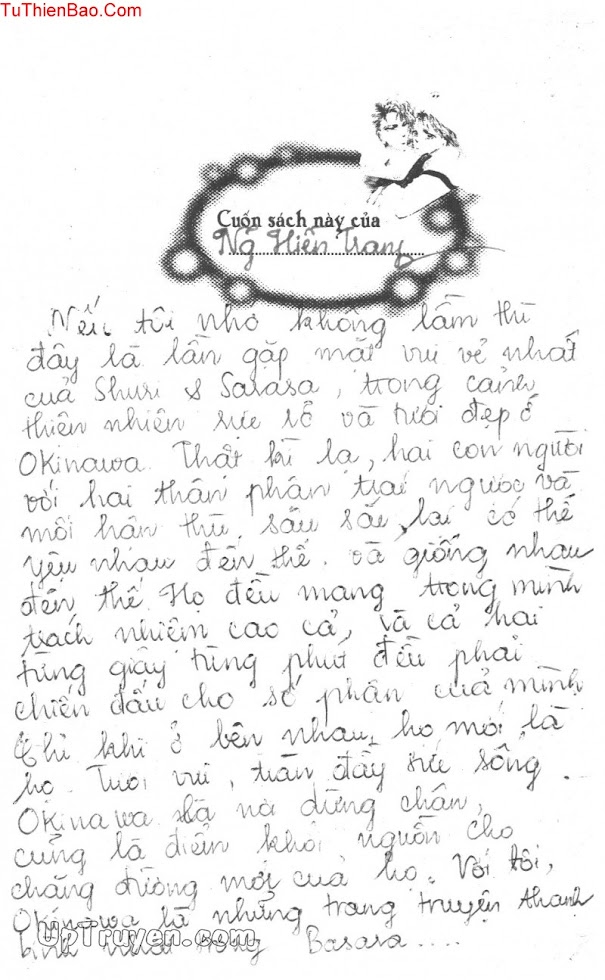 TuThienBao.Com
Cuốn sách này của
Ng Hiền Trang
Nếu tôi nhớ không lầm thì
đây là lần gặp mặt vui vẻ nhất
của Shuri & Sarasa, trong cảnh
thiên nhiên rực rỡ và tươi đẹp ở
Okinawa. Thật kì lạ, hai con người
với hai thân phận trái ngược và
mối hận thù sâu sắc lại có thể
yêu nhau đến thế. và giống nhau
đến thế. Họ đều mang trong mình
trách nhiệm cao cả, và cả hai
từng giây từng phút đều phải
chiến đấu cho số phận của mình
Chỉ khi ở bên nhau, họ mới là
họ. Tươi vui, tràn đầy sức sống.
Okinawa là nơi dừng chân,
cũng là điểm khởi nguồn cho
chặng đường mới của họ. Với tôi,
Okinawa là những trang truyện thanh
bình nhất trong Basara....
UpTruyen.com